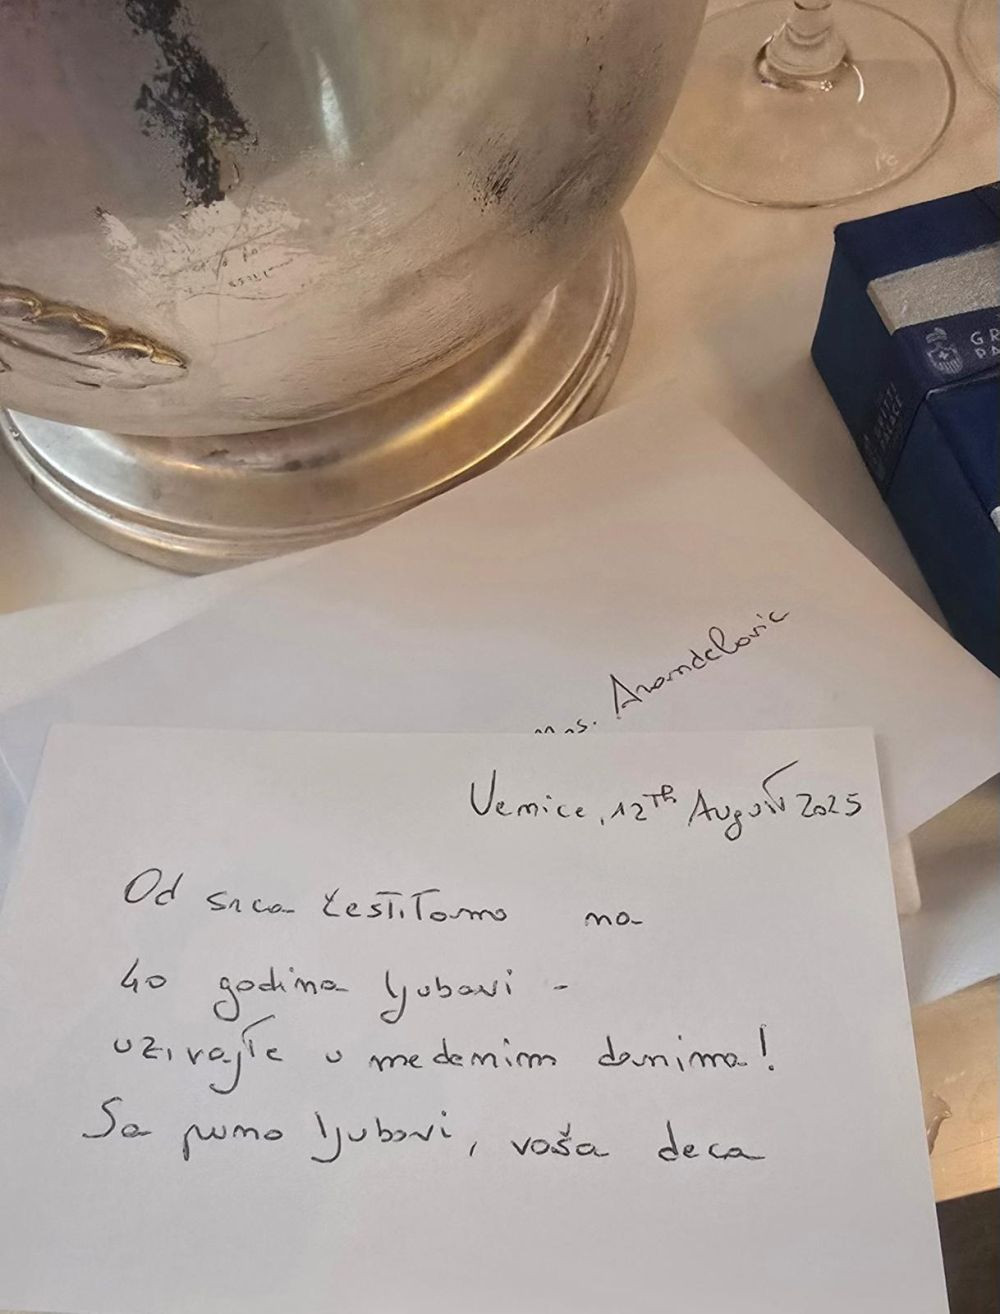 GR
PA
Mrs. Arandelovic
Venice, 12th August 2025
Od srca čestitamo na
40 godina ljubavi -
uzivajte u medenim danima!
Sa puno ljubavi, vaša deca